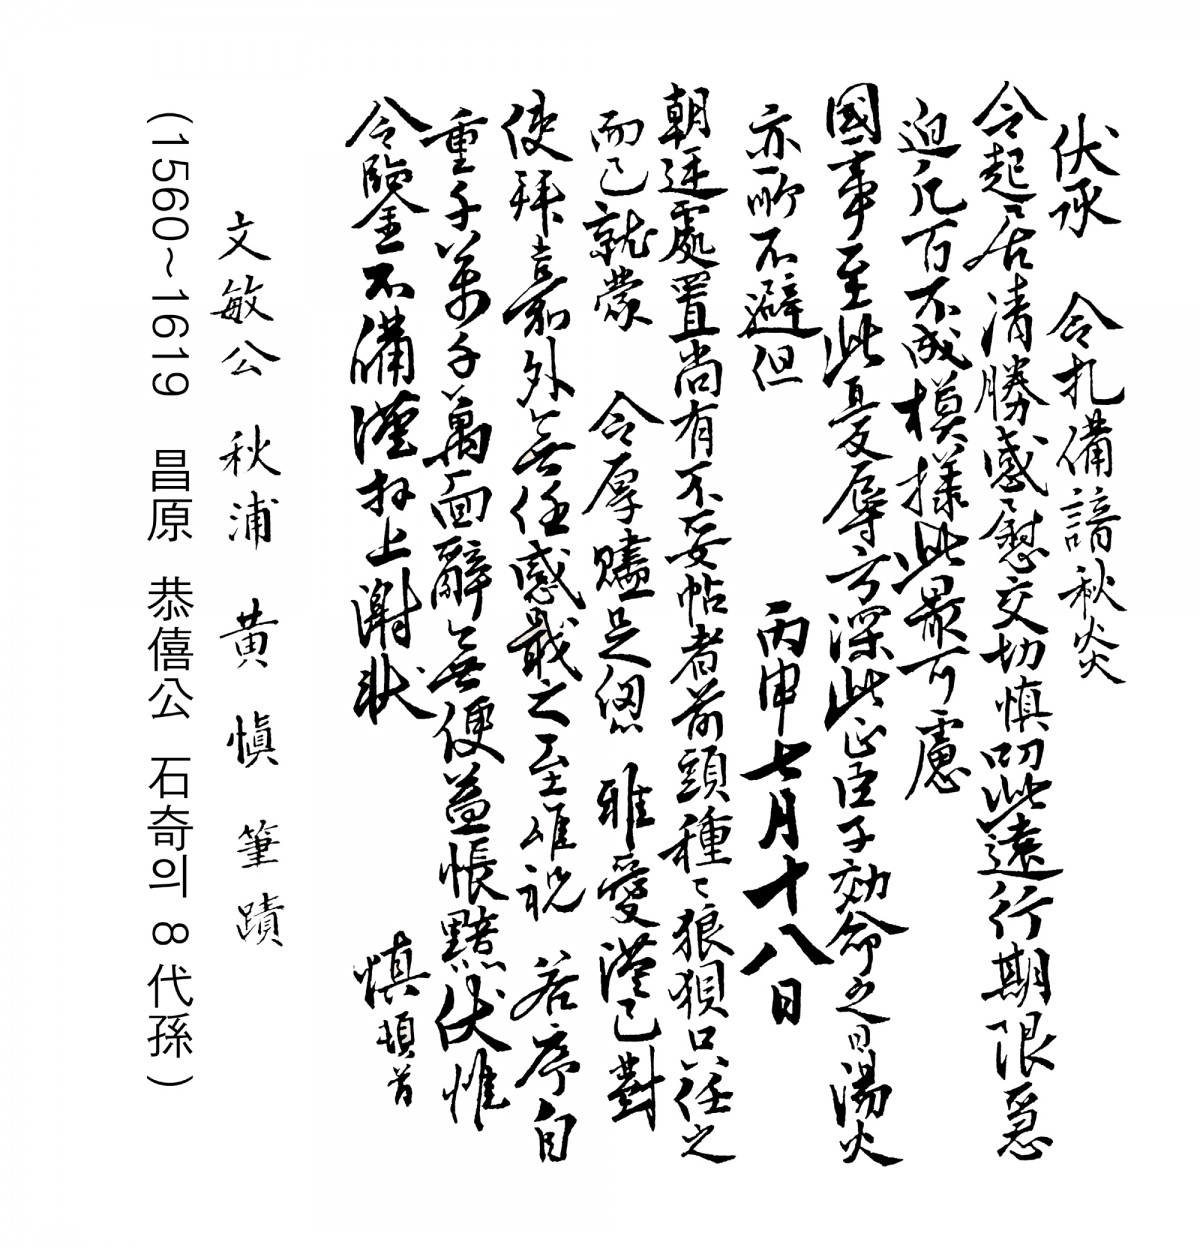 伏承 令札備諳秋炎
令起居清勝感慰交切慎叨此遠行期限急
迫凡百不成模樣此最可慮
國事至此憂辱方深此正臣子效命之日湯火
亦所不避但 丙申七月十八日
朝廷處置尚有不妥帖者前頭種〻狼狽只任之
而已就蒙 令厚贐足佩 雅愛謹已對
使拜嘉外無任感戢之至唯祝 若序自
重千萬千萬面辭無便益悵黯伏惟
令鑒不備謹拜上謝狀
慎頓首
文敏公 秋浦 黃愼 筆蹟
(1560~1619 昌原 恭僖公 石奇의 8代孫)